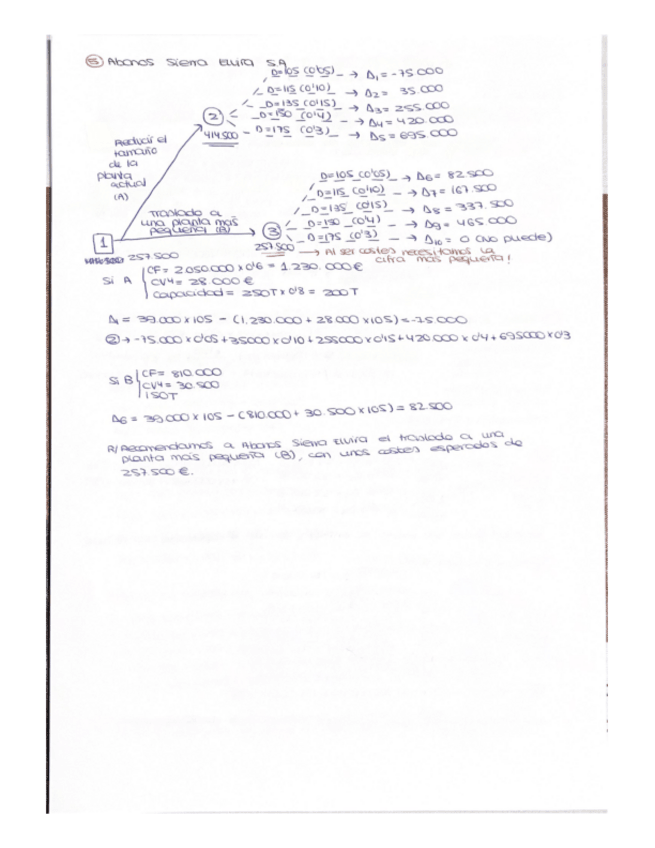 ⑤ Abonos Sierra Elvira S.A
D=105 (0'05) → Δ₁ = -75.000
D=115 (0'10) → Δ₂ = 35.000
D=135 (0'15) → Δ₃ = 255.000
②
D=150 (0'4) → Δ₄ = 420.000
414.500
D=175 (0'3) → Δ₅ = 695.000
Reducir el
tamaño
de la
planta
actual
(A)
D=105 (0'05) → Δ6 = 82.500
D=115 (0'10) → Δ7 = 167.500
D=135 (0'15) → Δ8 = 337.500
Traslado a
una planta más
pequeña (B)
③
D=150 (0'4) → Δ9 = 465.000
D=175 (0'3) → Δ10 = 0 (No puede)
1
257.500 → Al ser costes necesitamos la
cifra más pequeña!
257.500
Si A
CF = 2050.000 x 0'6 = 1.230.000 €
CV4 = 28.000 €
Capacidad = 250T x 0'8 = 200T
Δ1 = 39.000 x 105 - (1.230.000 + 28.000 x 105) = -75.000
② → -75.000 x 0'05 + 35000 x 0'10 + 255000 x 0'15 + 420.000 x 0'4 + 695000 x 0'3
Si B
CF = 810.000
CV4 = 30.500
150T
Δ6 = 39.000 x 105 - (810.000 + 30.500 x 105) = 82.500
R/ Recomendamos a Abonos Sierra Elvira el traslado a una
planta más pequeña (B), con unos costes esperados de
257.500 €.